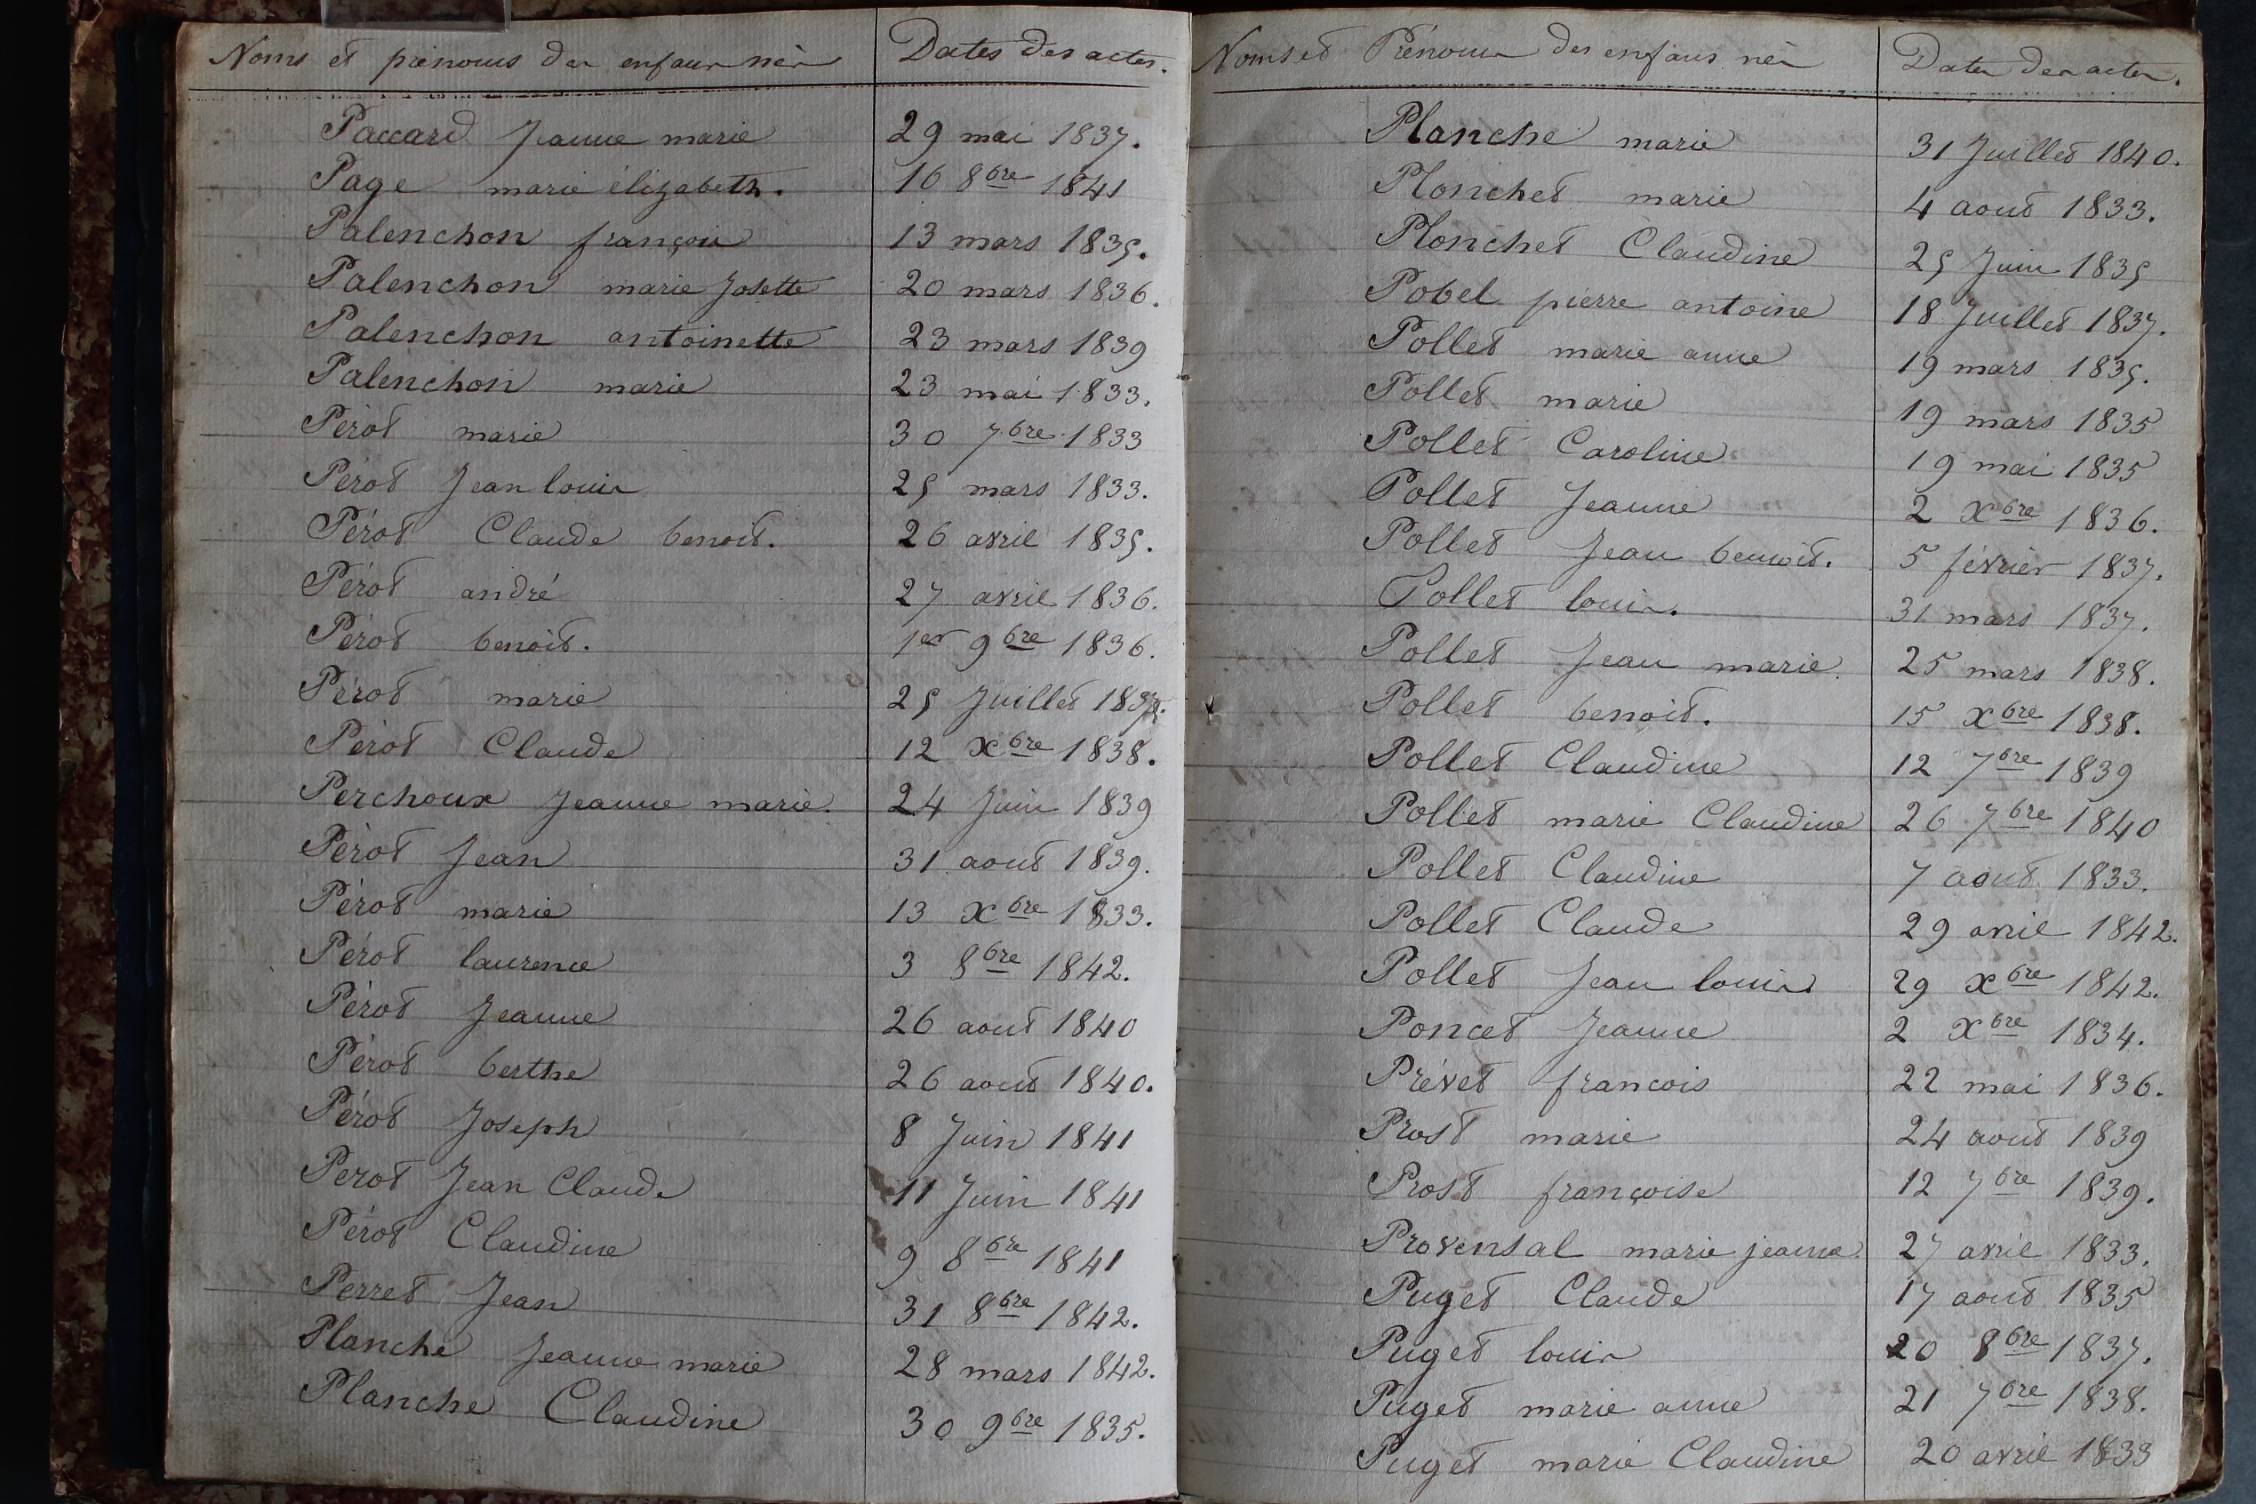 Noms et prénoms des enfans nés Dates des actes.
Paccard Jeanne marie 29 mai 1837.
Page marie élizabeth. 16 8bre 1841
Palenchon françois 13 mars 1835.
Palenchon marie Josette 20 mars 1836.
Palenchon antoinette 23 mars 1839
Palenchon marie 23 mai 1833.
Pérot marie 30 7bre 1833
Pérot Jean louis 25 mars 1833.
Pérot Claude benoit. 26 avril 1835.
Pérot andré 27 avril 1836.
Pérot benoit. 1er 9bre 1836.
Pérot marie 25 Juillet
Pérot Claude 12 xbre 1838.
Perchoux Jeanne marie. 24 Juin 1839
Pérot Jean 31 aout 1839.
Pérot marie 13 xbre 1833.
Pérot laurence 3 8bre 1842.
Pérot Jeanne 26 aout 1840
Pérot berthe 26 aout 1840.
Pérot Joseph 8 Juin 1841
Perot Jean Claude 11 Juin 1841
Pérot Claudine 9 8bre 1841
Perret Jean 31 8bre 1842.
Planche Jeanne marie 28 mars 1842.
Planche Claudine 30 9bre 1835.
Noms et Prénoms des enfans nés Dates des actes.
Planche marie 31 Juillet 1840.
Plonchet marie 4 aout 1833.
Plonchet Claudine 25 Juin 1835
Pobel pierre antoine 18 Juillet 1837.
Pollet marie anne 19 mars 1835.
Pollet marie 19 mars 1835
Pollet Caroline 19 mai 1835
Pollet Jeanne 2 xbre 1836.
Pollet Jean benoit. 5 février 1837.
Pollet louis. 31 mars 1837.
Pollet Jean marie. 25 mars 1838.
Pollet benoit. 15 xbre 1838.
Pollet Claudine 12 7bre 1839
Pollet marie Claudine 26 7bre 1840
Pollet Claudine 7 aout 1833.
Pollet Claude 29 avril 1842.
Pollet Jean louis 29 xbre 1842.
Poncet Jeanne 2 xbre 1834.
Prévet francois 22 mai 1836.
Prost marie 24 aout 1839
Prost françoise 12 7bre 1839.
Provensal marie jeanne. 27 avril 1833.
Puget Claude 17 aout 1835
Puget louis 20 8bre 1837.
Puget marie anne 21 7bre 1838.
Puget marie Claudine 20 avril 1833